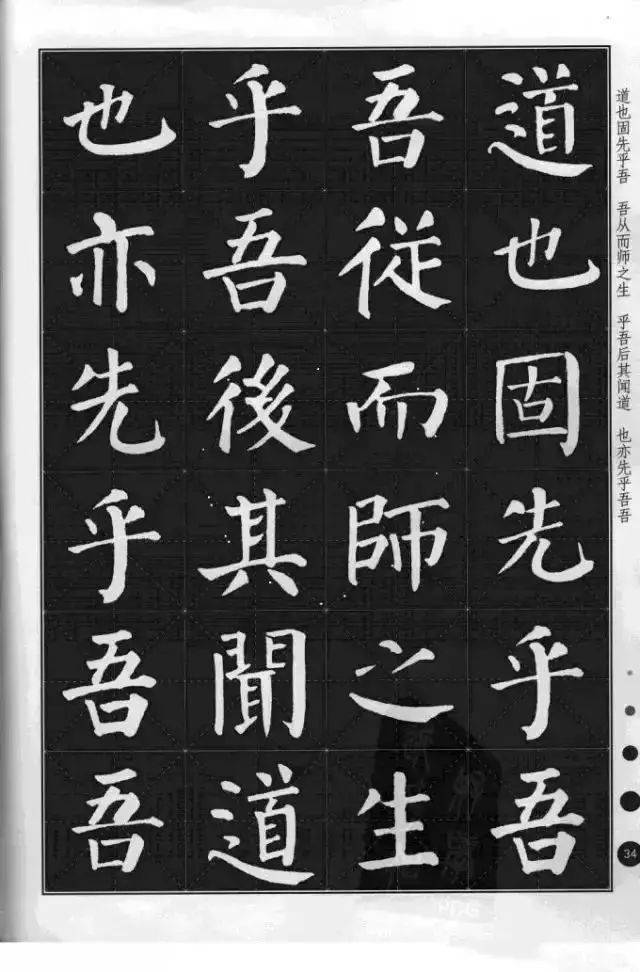 道也固先乎吾
吾從而師之生
乎吾後其聞道
也亦先乎吾吾
道也固先乎吾 吾从而师之生 乎吾后其闻道 也亦先乎吾吾
34